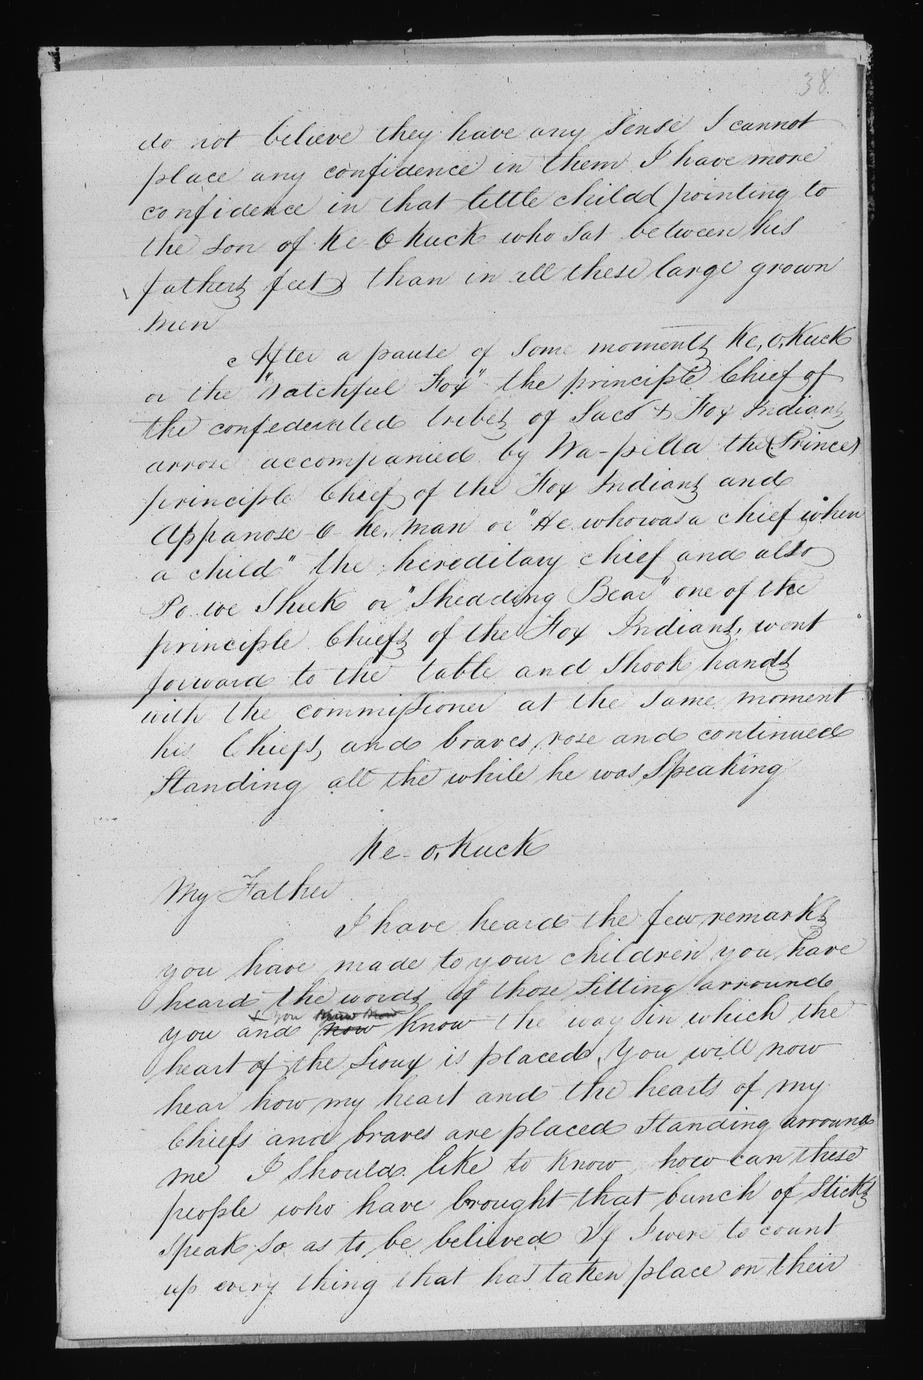 38
do not believe they have any sense I cannot
place any confidence in them I have more
confidence in that little child (pointing to
the son of Ke-O Kuck who sat between his
fathers feet) than in all these large grown
men
After a pause of some moments Ke,o,Kuck
or the "Watchful Fox" the principle Chief of
the confederated tribes of Sacs & Fox Indians
arrose accompanied by Wa-pella the (Prince)
principle Chief of the Fox Indians and
Appanose O Ke, man or "He who was a chief when
a child" the hereditary chief and also
Po we Shiek or "Shedding Bear" one of the
principle Chiefs of the Fox Indians, went
forward to the table and shook hands
with the commissioner at the same moment
his Chiefs, and braves rose and continued
standing all the while he was speaking
Ke-o,Kuck
My Father
I have heard the few remarks
you have made to your children you have
heard the words of those sitting arround
& you
you and now know the way in which the
heart of the Sioux is placed, You will now
hear how my heart and the hearts of my
Chiefs and braves are placed standing arround
me I should like to know how can these
people who have brought that bunch of sticks
speak so as to be believed If I were to count
up every thing that has taken place on their